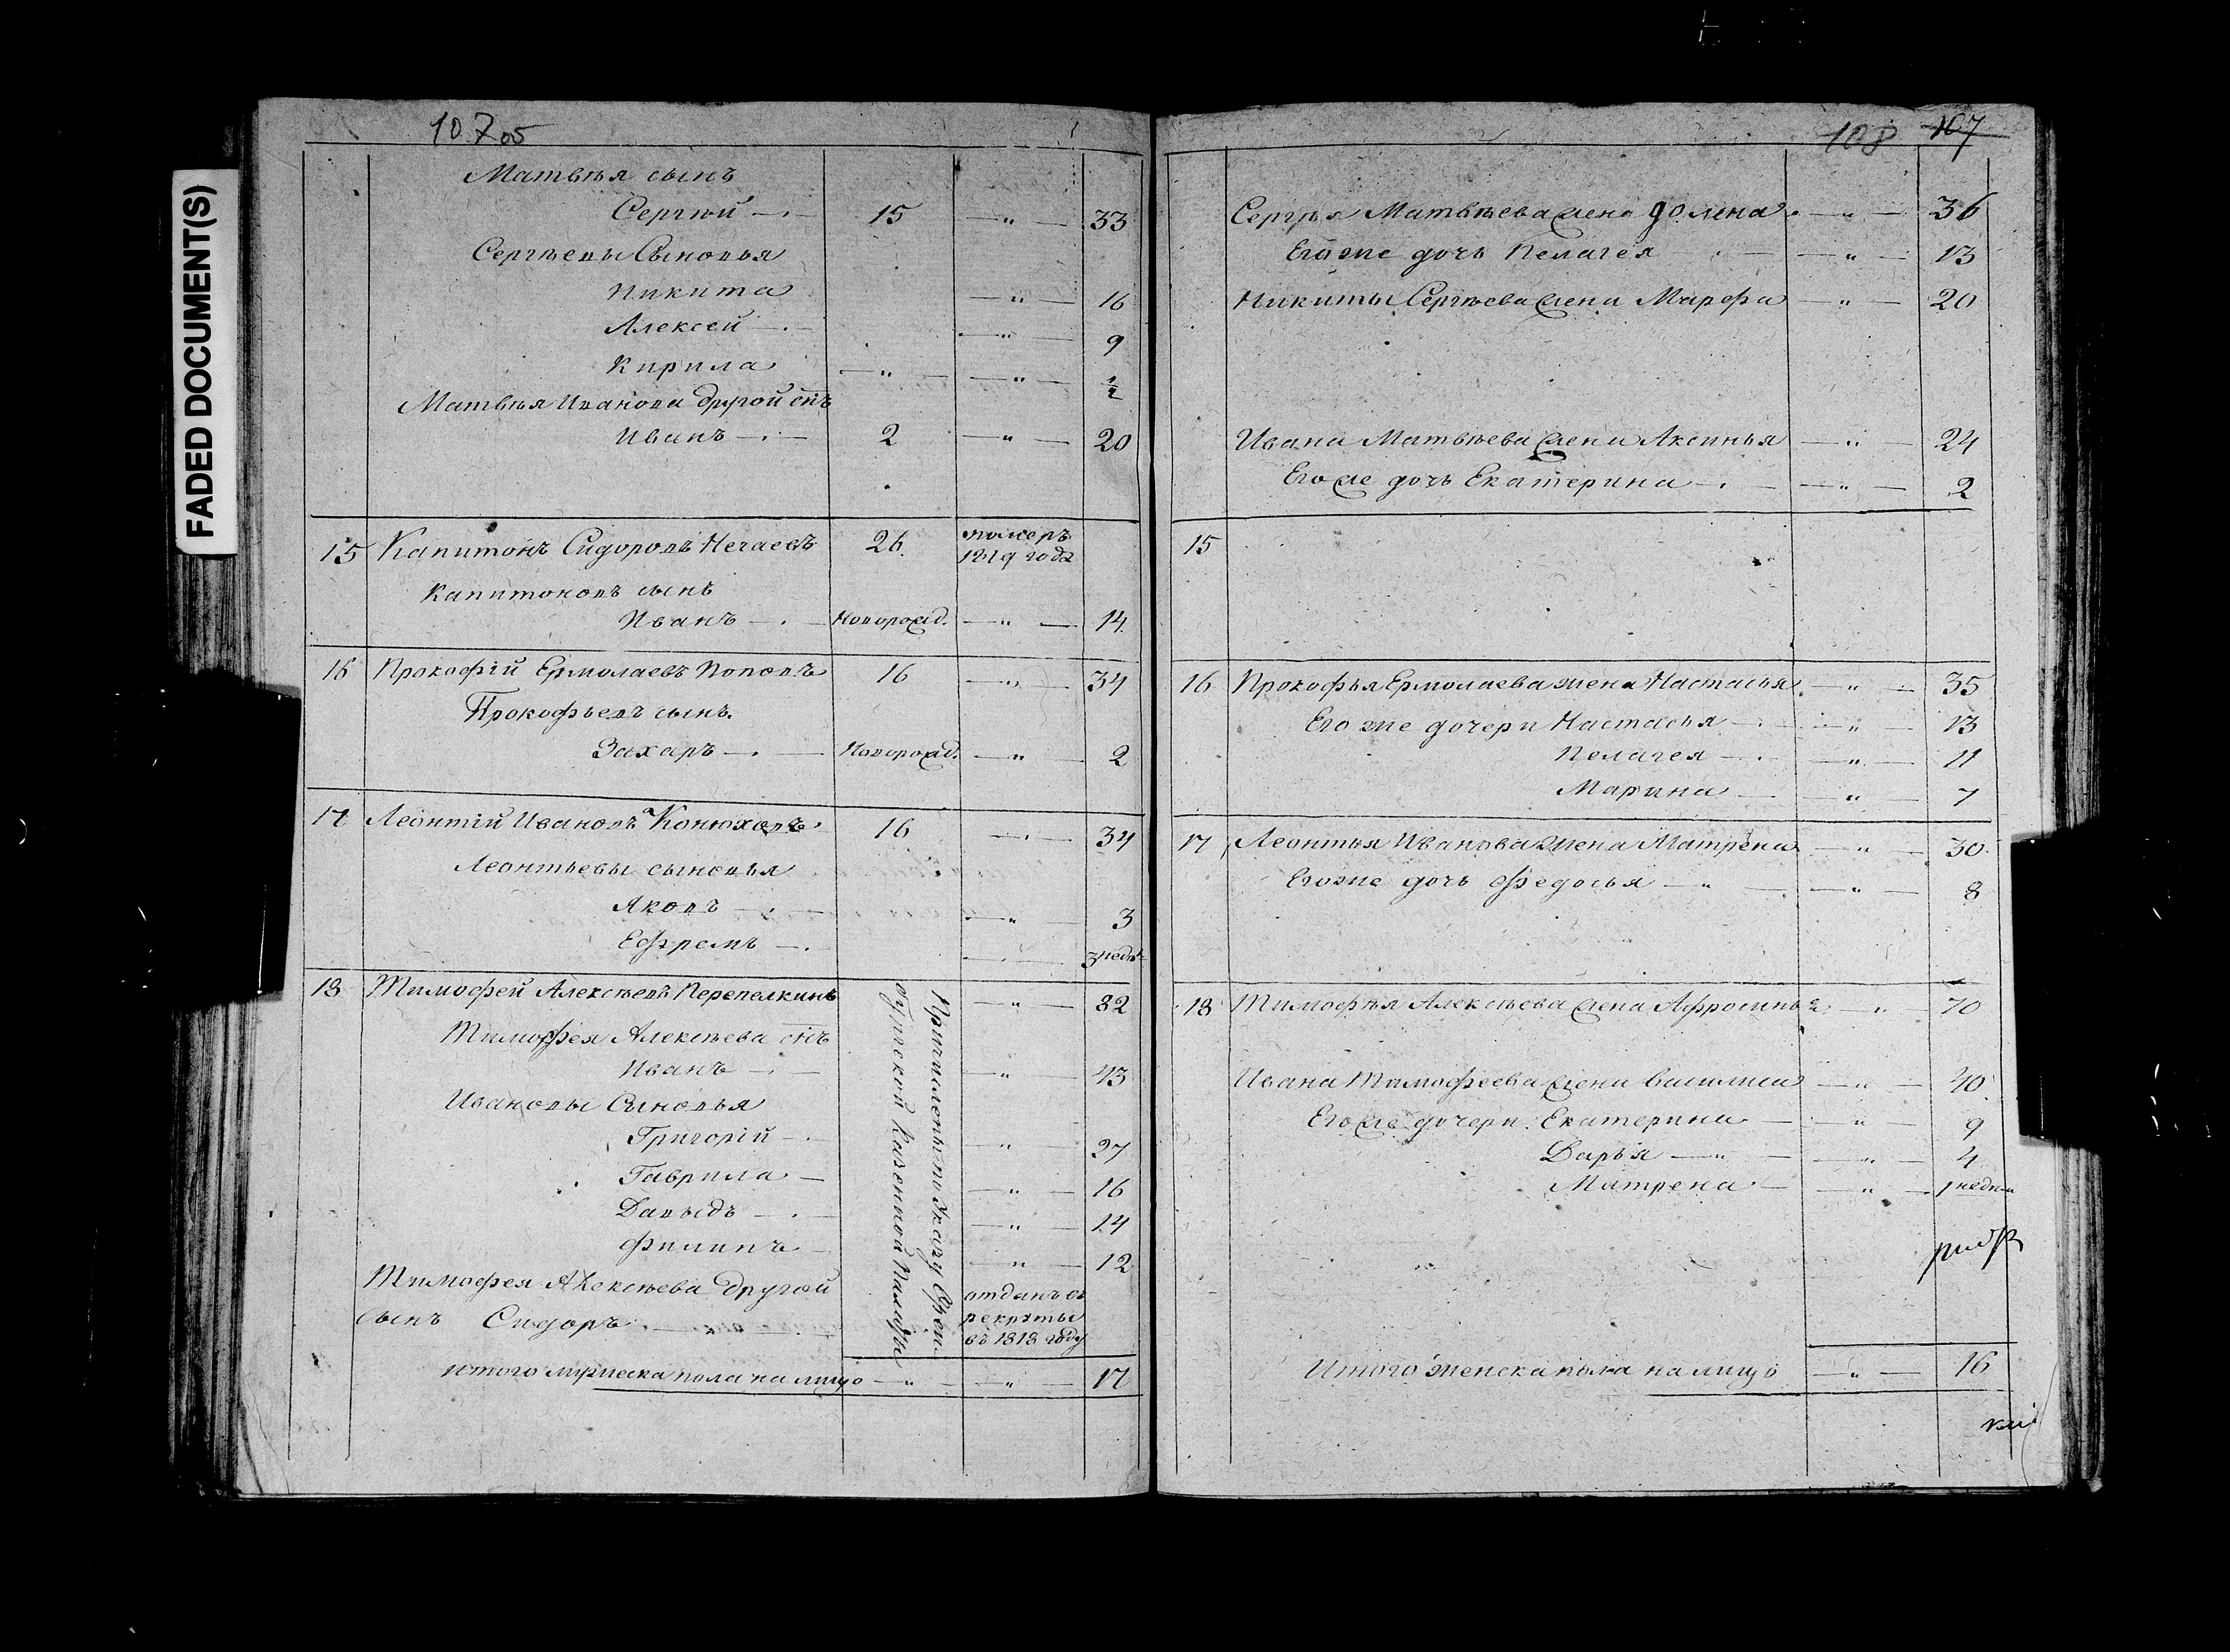 FADED DOCUMENT(S)
10.7.05
Матвѣя сынъ
Сергѣй 15 — " — 33
Сергѣевы Сыновья
Никита — " — 16
Алексей — " — 9
Кирила — " — — " — ½
Матвѣя Иванова другой снъ
Иванъ 2 — " — 20
15 Капитонъ Сидоровъ Нечаевъ 26. померъ 1819 года
Капитоновъ сынъ
Иванъ Новорожд. — " — 14
16 Прокофій Ермолаевъ Поповъ 16 — " — 34
Прокофьевъ сынъ.
Захаръ Новорожд. — " — 2
17 Леонтій Ивановъ Конюховъ 16 — " — 34
Леонтьевы сыновья
Яковъ — " — 3
Ефремъ 3 недѣл
18 Тимофей Алексѣевъ Перепелкинъ — " — 82
Тимофея Алексѣева снъ
Иванъ — " — 43
Ивановы Сыновья
Григорій — " — 27
Гаврила — " — 16
Давыдъ — " — 14
Филипъ — " — 12
Тимофея Алексѣева другой
сынъ Сидоръ отданъ въ рекруты въ 1818 году
Причислены по Указу Орен-
бургской Казенной Палаты
итого мужеска пола на лицо — " — — " — 17
108 107
Сергѣя Матвѣева жена — " — 36
Его же дочь Пелагея — " — 13
Никиты Сергѣева жена Марфа — " — 20
Ивана Матвѣева жена Аксинья — " — 24
Его же дочь Екатерина — " — 2
15
16 Прокофья Ермолаева жена Настасья — " — 35
Его же дочери Настасья — " — 13
Пелагея — " — 11
Марина — " — 7
17 Леонтья Иванова жена Матрена — " — 30
Его же дочь Федосья — " — 8
18 Тимофѣя Алексѣева жена Афросинья — " — 70
Ивана Тимофеева жена Василиса — " — 40
Его же дочери Екатерина — " — 9
Дарья — " — 4
Матрена — " — 1 недели
Итого женска пола на лицо — " — 16